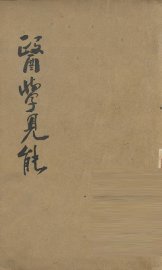 醫學見能